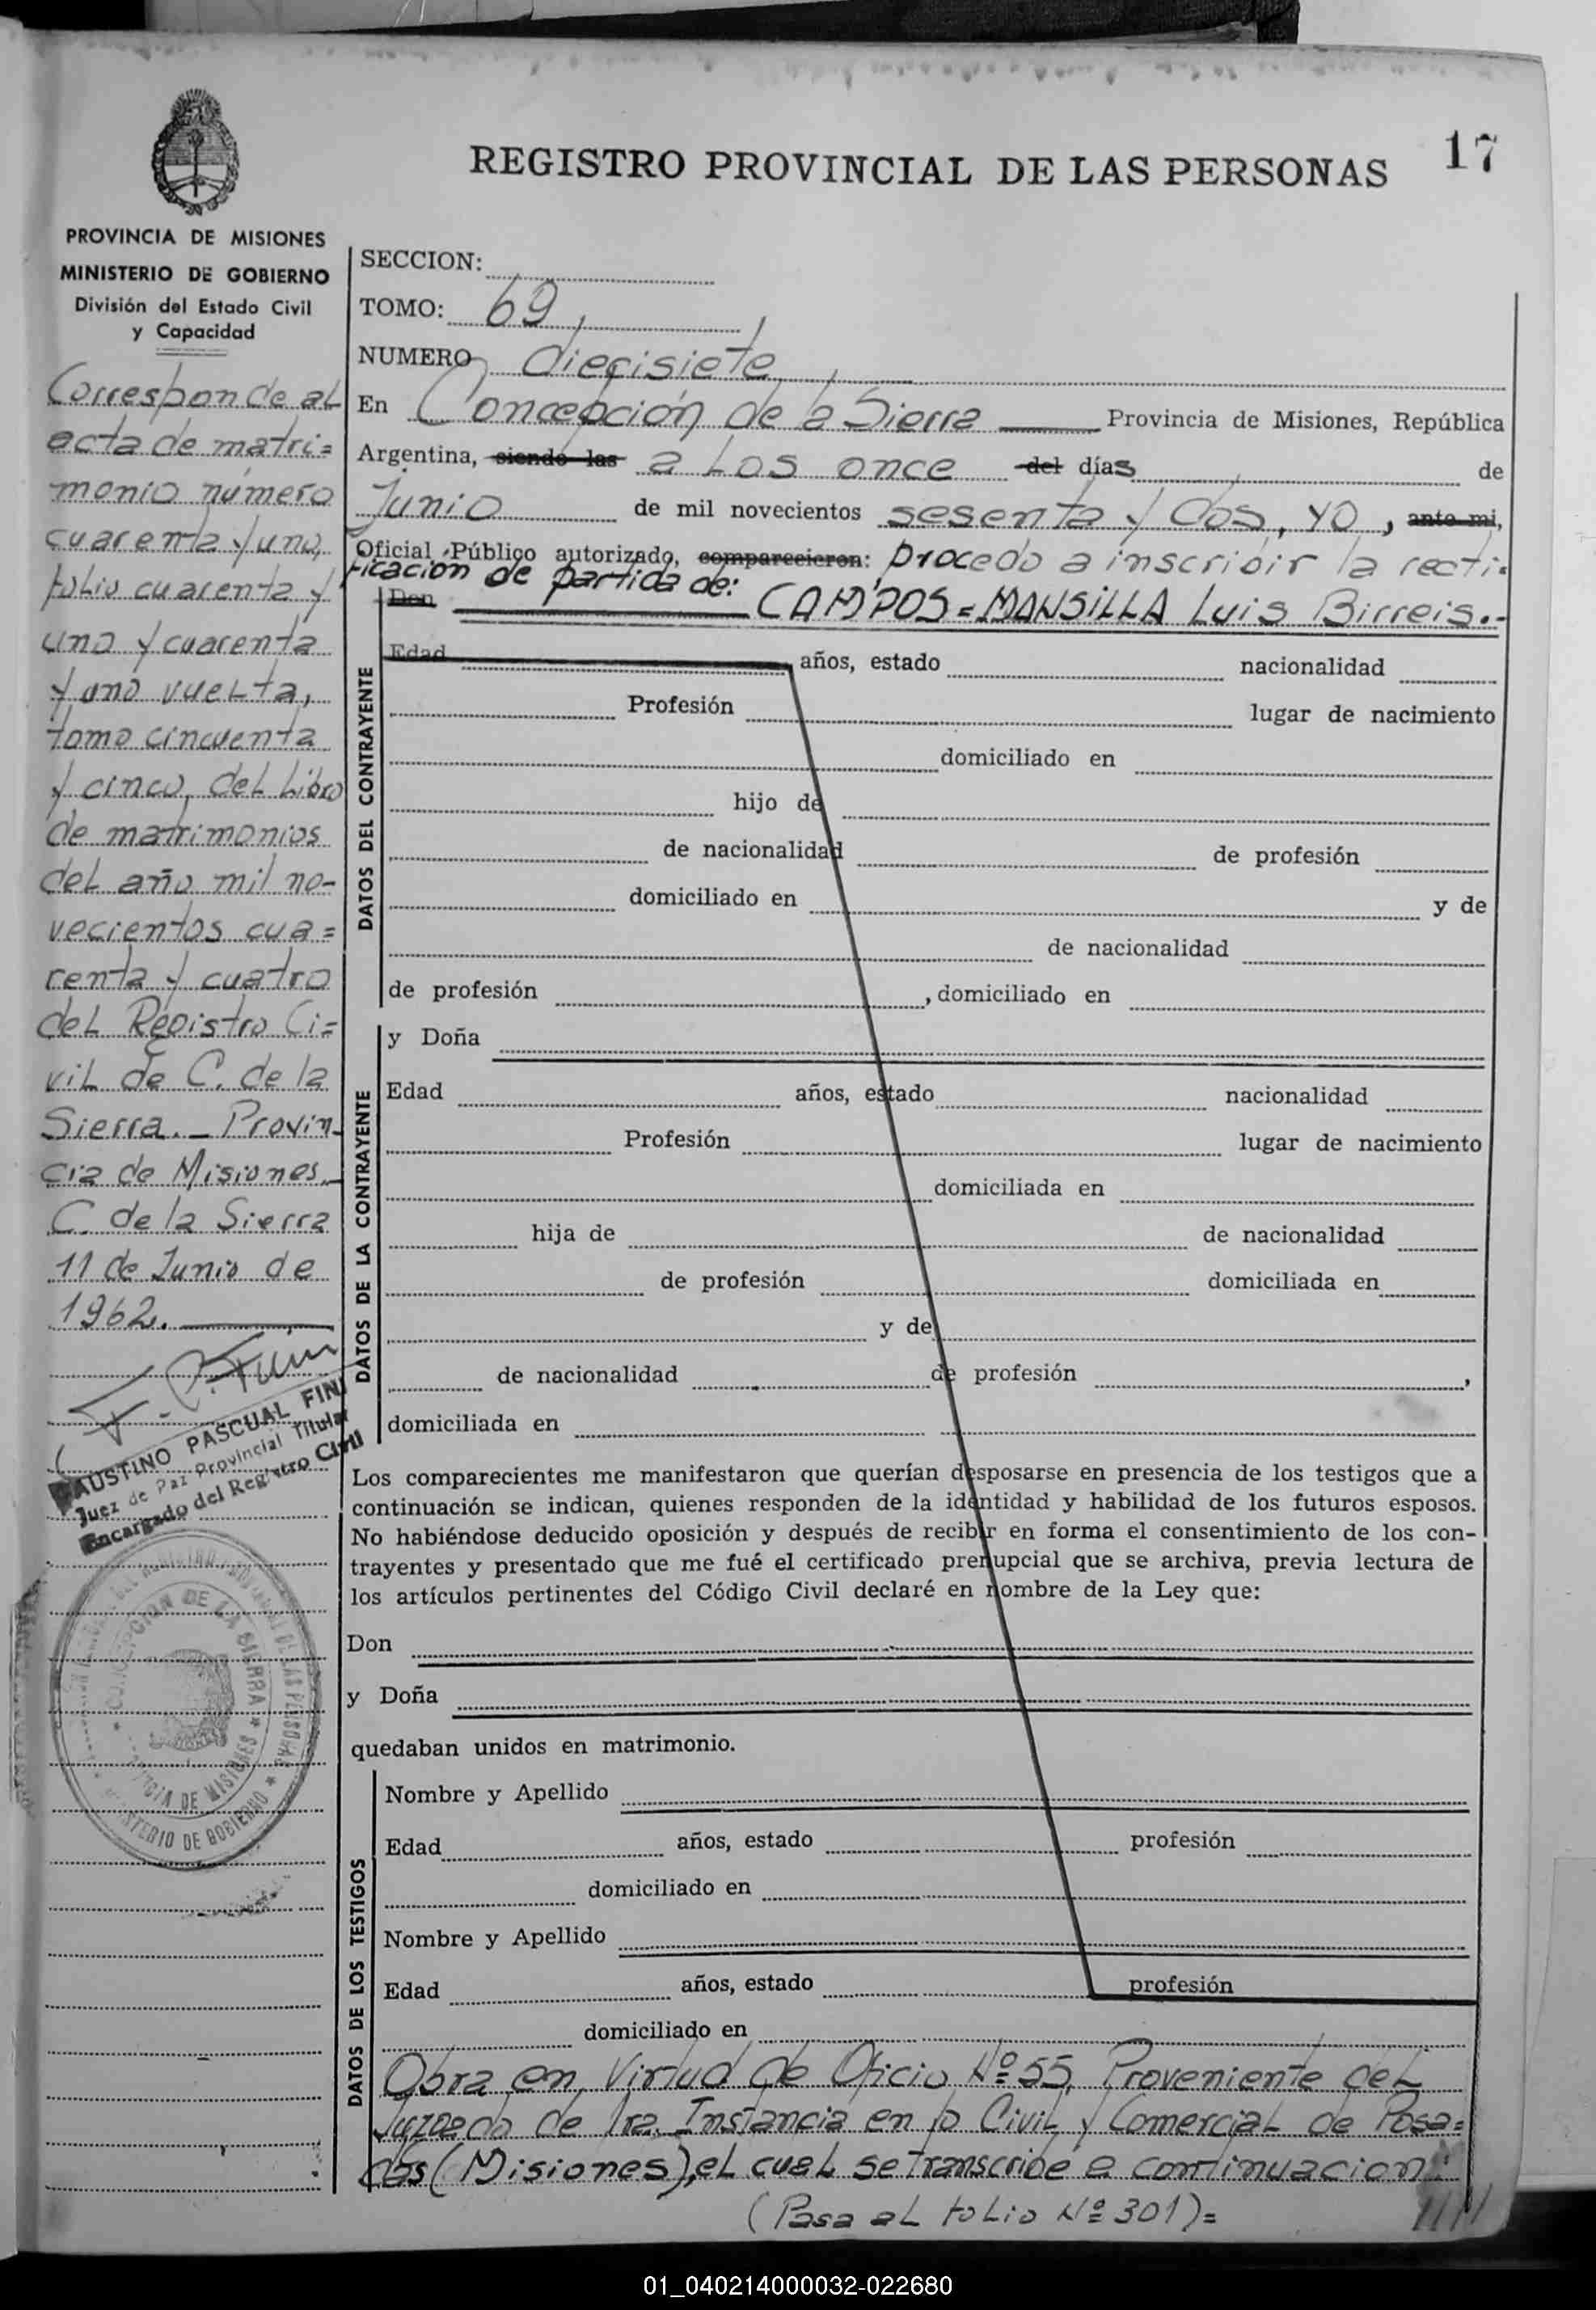 REGISTRO PROVINCIAL DE LAS PERSONAS
17
PROVINCIA DE MISIONES
MINISTERIO DE GOBIERNO
División del Estado Civil
y Capacidad
Corresponde al
acta de matri=
monio número
cuarenta y uno,
folio cuarenta y
uno y cuarenta
y uno vuelta,
tomo cincuenta
y cinco, del Libro
de matrimonios
del año mil no-
vecientos cua=
renta y cuatro
del Registro Ci=
vil de C. de la
Sierra._ Provin-
cia de Misiones._
C. de la Sierra
11 de Junio de
1962.
FAUSTINO PASCUAL FINI
Juez de Paz Provincial Titular
Encargado del Registro Civil
CONCEPCION DE LA SIERRA
DE MISIONES
MINISTERIO DE GOBIERNO
SECCION:
TOMO: 69
NUMERO diecisiete
En Concepción de la Sierra Provincia de Misiones, República
Argentina, siendo las a Los once del días de
Junio de mil novecientos sesenta y Dos, yo, ante mi,
Oficial Público autorizado, comparecieron: procedo a inscribir la recti=
ficación de partida de:
Don CAMPOS=MANSILLA Luis Birreis.-
DATOS DEL CONTRAYENTE
Edad años, estado nacionalidad
Profesión lugar de nacimiento
domiciliado en
hijo de
de nacionalidad de profesión
domiciliado en y de
de nacionalidad
de profesión , domiciliado en
DATOS DE LA CONTRAYENTE
y Doña
Edad años, estado nacionalidad
Profesión lugar de nacimiento
domiciliada en
hija de de nacionalidad
de profesión domiciliada en
y de
de nacionalidad de profesión ,
domiciliada en
Los comparecientes me manifestaron que querían desposarse en presencia de los testigos que a
continuación se indican, quienes responden de la identidad y habilidad de los futuros esposos.
No habiéndose deducido oposición y después de recibir en forma el consentimiento de los con-
trayentes y presentado que me fué el certificado prenupcial que se archiva, previa lectura de
los artículos pertinentes del Código Civil declaré en nombre de la Ley que:
Don
y Doña
quedaban unidos en matrimonio.
DATOS DE LOS TESTIGOS
Nombre y Apellido
Edad años, estado profesión
domiciliado en
Nombre y Apellido
Edad años, estado profesión
domiciliado en
Obra en Virtud de Oficio Nº 55, Proveniente del
Juzgado de 1ra. Instancia en lo Civil y Comercial de Posa=
das (Misiones), el cual se transcribe a continuacion:
(Pasa al folio Nº 301)=
////
01_040214000032-022680